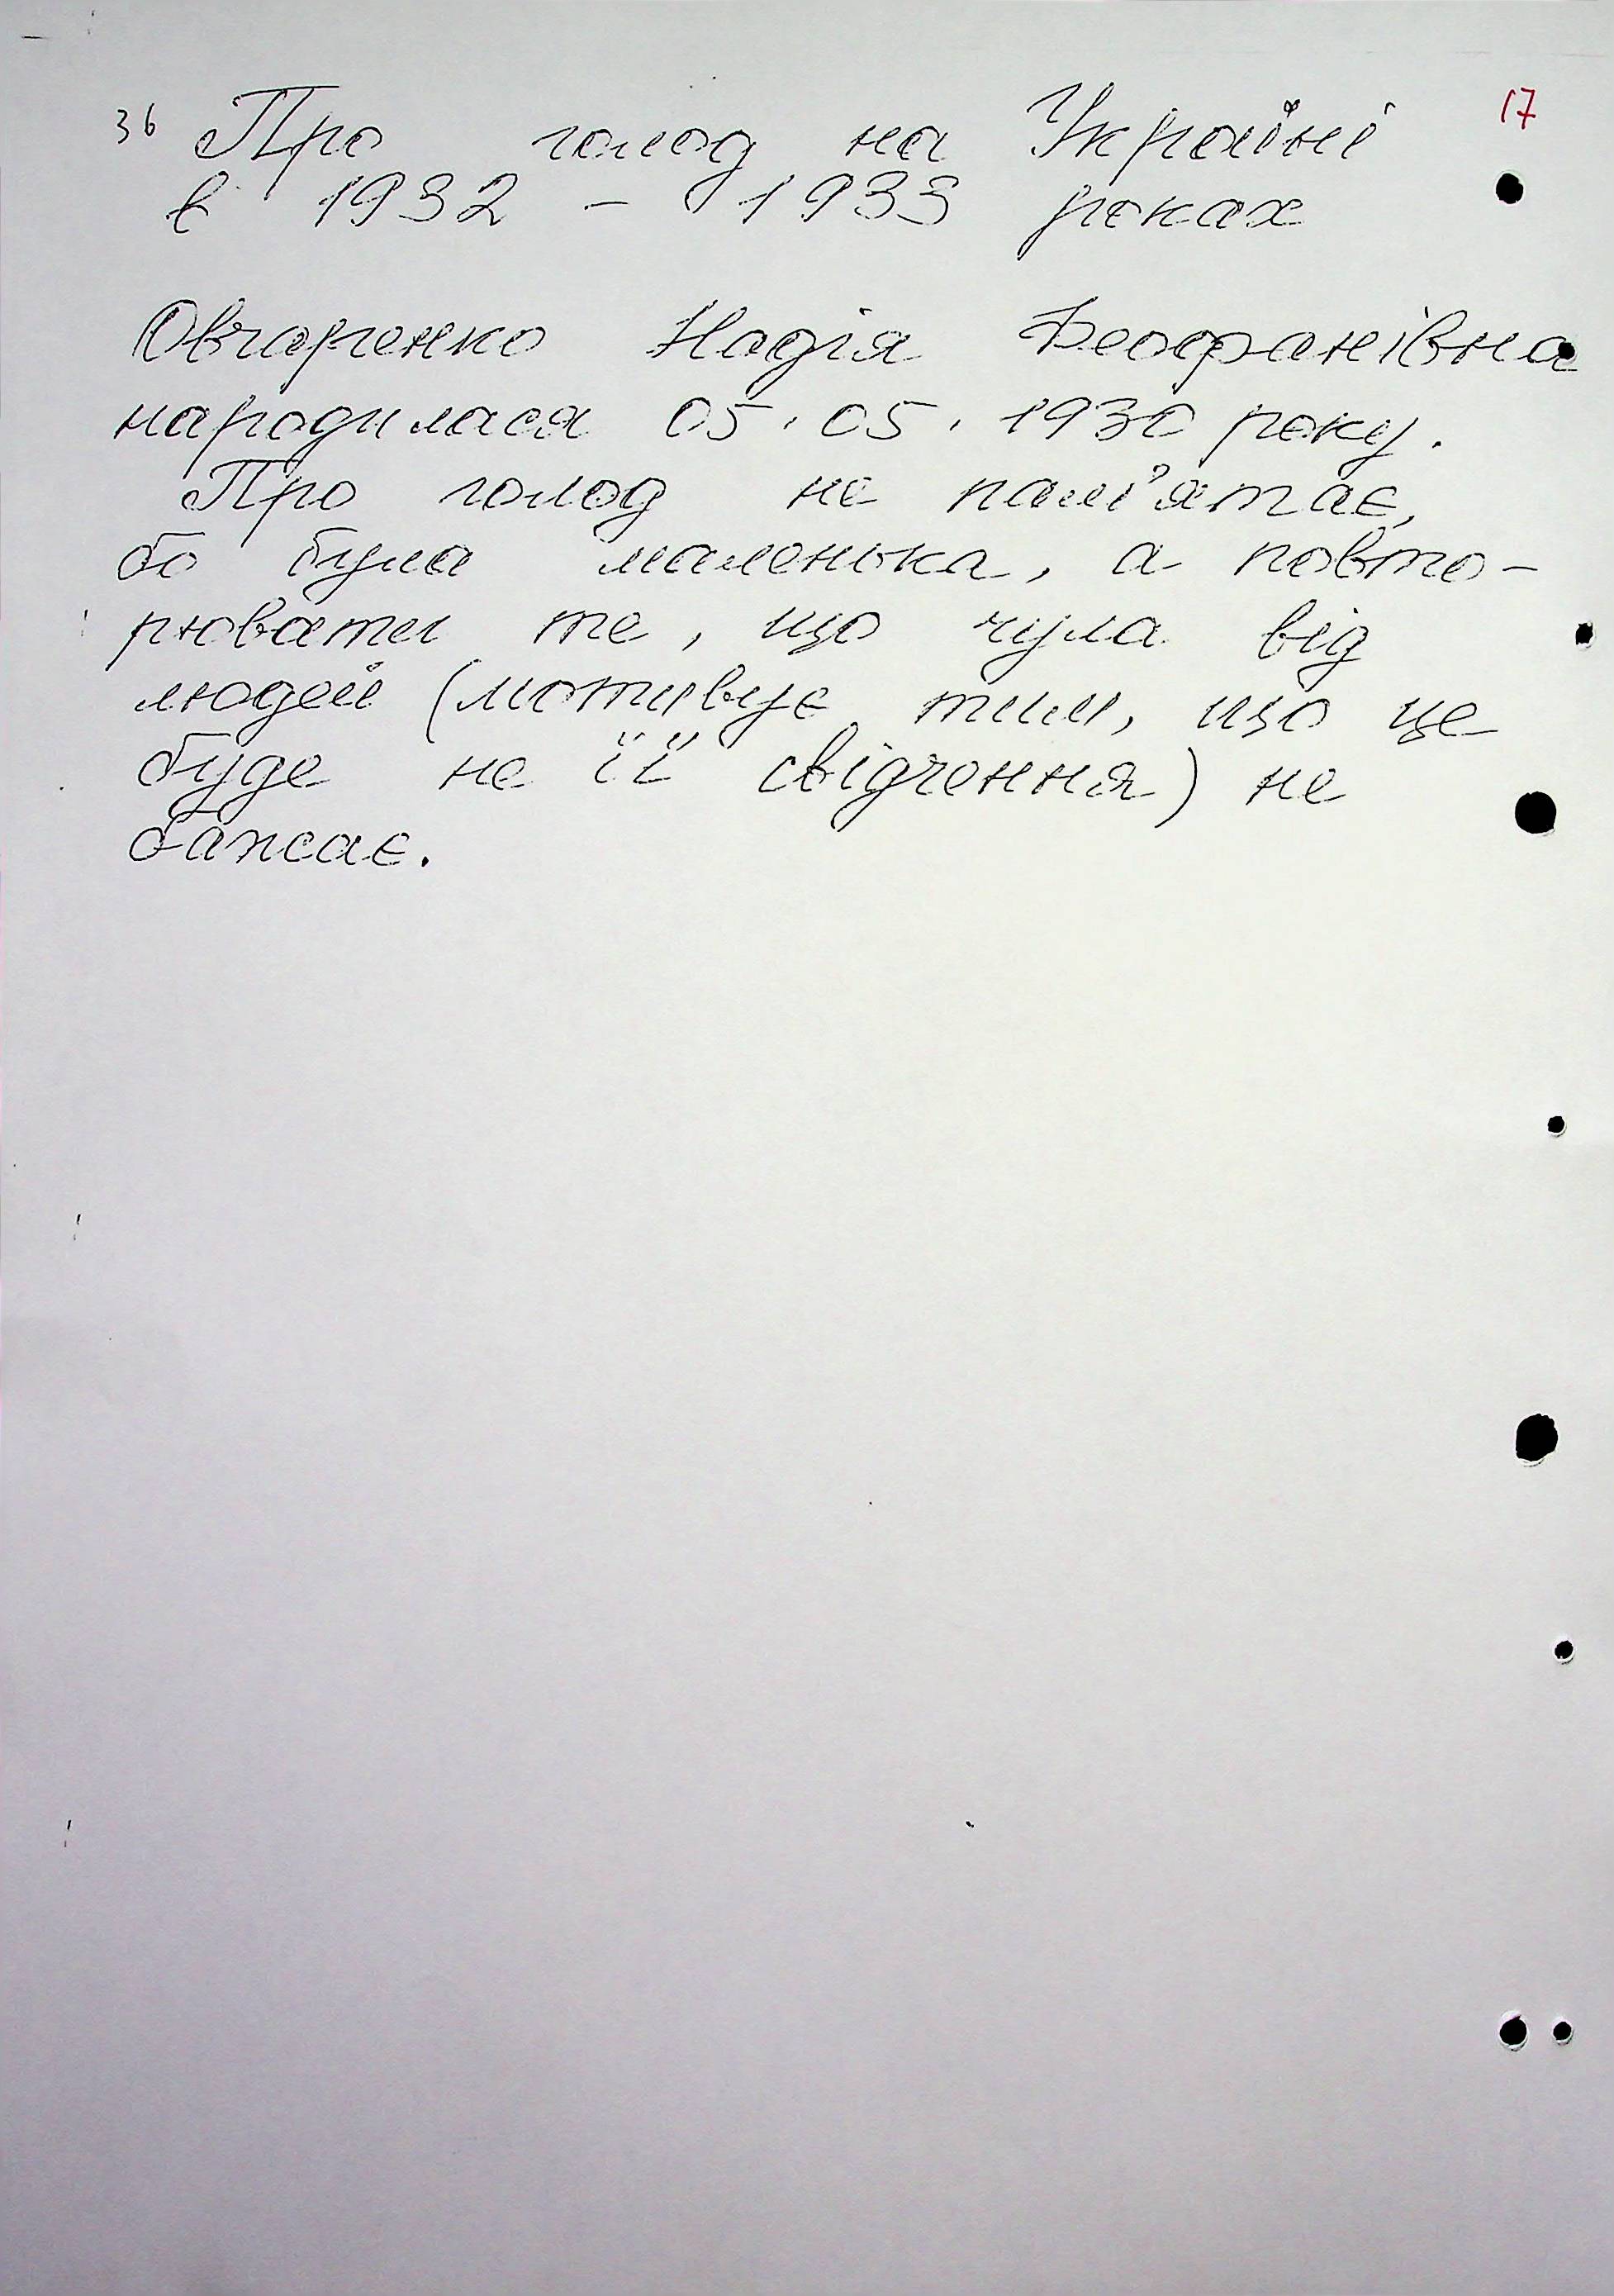 36 Про голод на Україні 17
в 1932 - 1933 роках
Овчаренко Надія Феофанівна
народилася 05.05.1930 року.
Про голод не пам'ятає,
бо була маленька, а повто-
рювати те, що чула від
людей (мотивує тим, що це
буде не її свідчення) не
бажає.